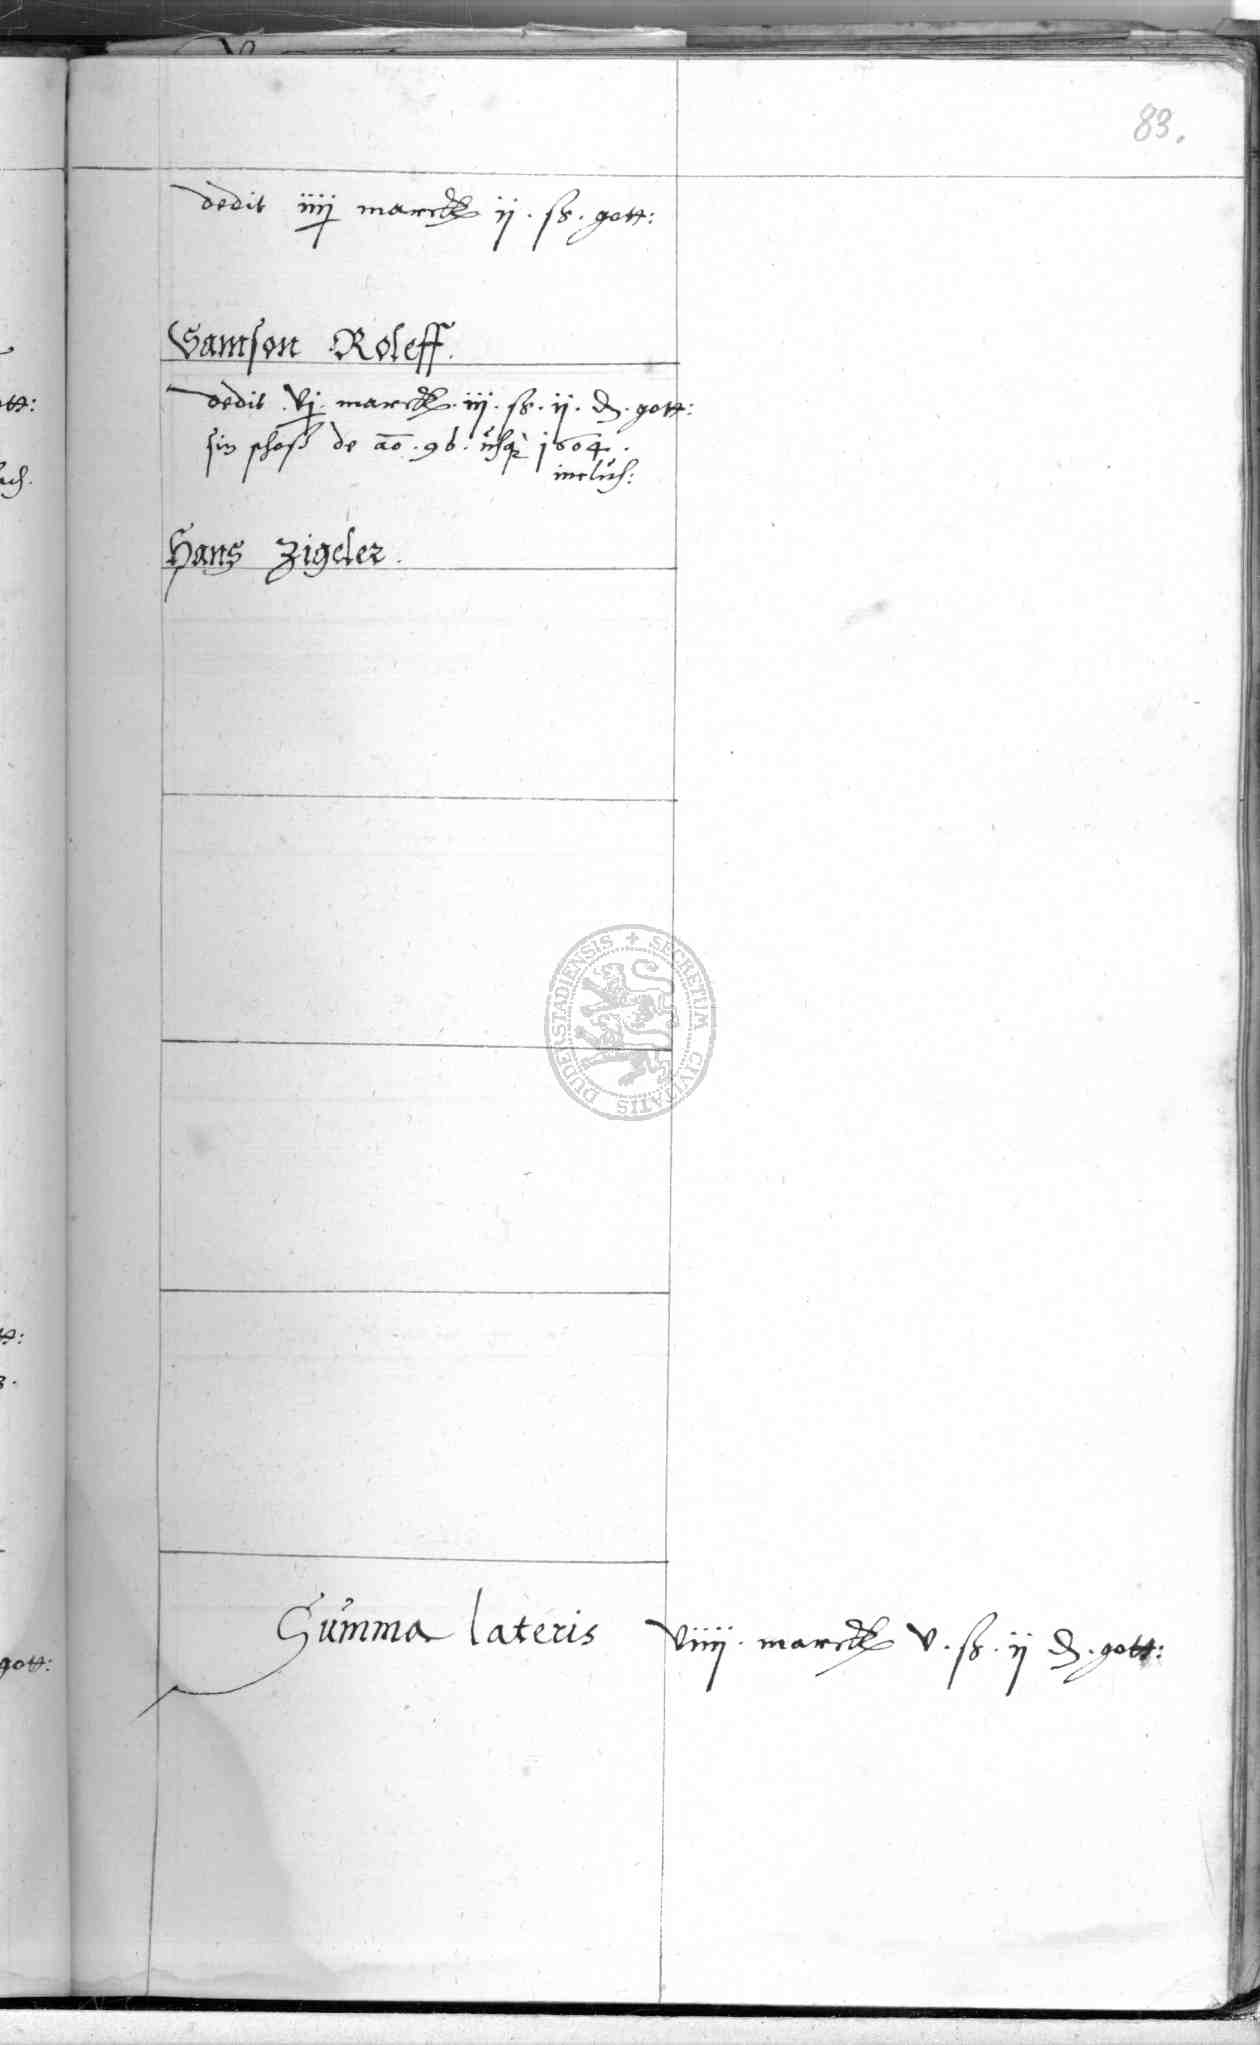 83.
dedit iiij marck ij. ß. gott:
Samson Roleff.
dedit. vj. marck. iij. ß. ij. d. gott:
sin schoß de ao. 96. usque 1604.
inclus:
Hans Zigeler.
SECRETUM CIVITATIS DUDERSTADIENSIS
Summa lateris viiij. marck v. ß. ij d. gott:
gott: